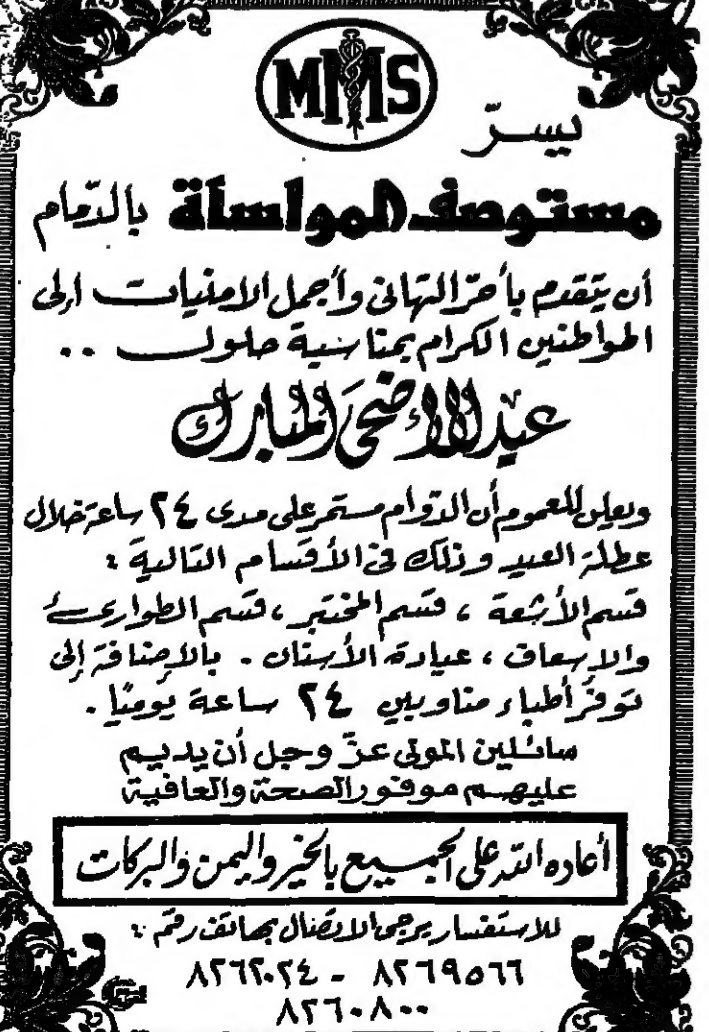 MMS
يسرّ
مستوصف المواساة بالدّمام
أن يتقدم بأحرّ التهاني وأجمل الامنيات إلى
المواطنين الكرام بمناسبة حلول ..
عيد الأضحى المبارك
ويعلن للعموم أن الدوام مستمر على مدى ٢٤ ساعة خلال
عطلة العيد وذلك في الأقسام التالية :
قسم الأشعة ، قسم المختبر ، قسم الطوارئ
والاسعاف ، عيادة الأسنان . بالاضافة إلى
توفر أطباء مناوبين ٢٤ ساعة يوميًا .
سائلين المولى عزّ وجل أن يديم
عليهم موفور الصحة والعافية
أعاده الله على الجميع بالخير واليمن والبركات
للاستفسار يرجى الاتصال بهاتف رقم :
٨٢٦٩٥٦٦ - ٨٢٦٢٠٢٤
٨٢٦٠٨٠٠